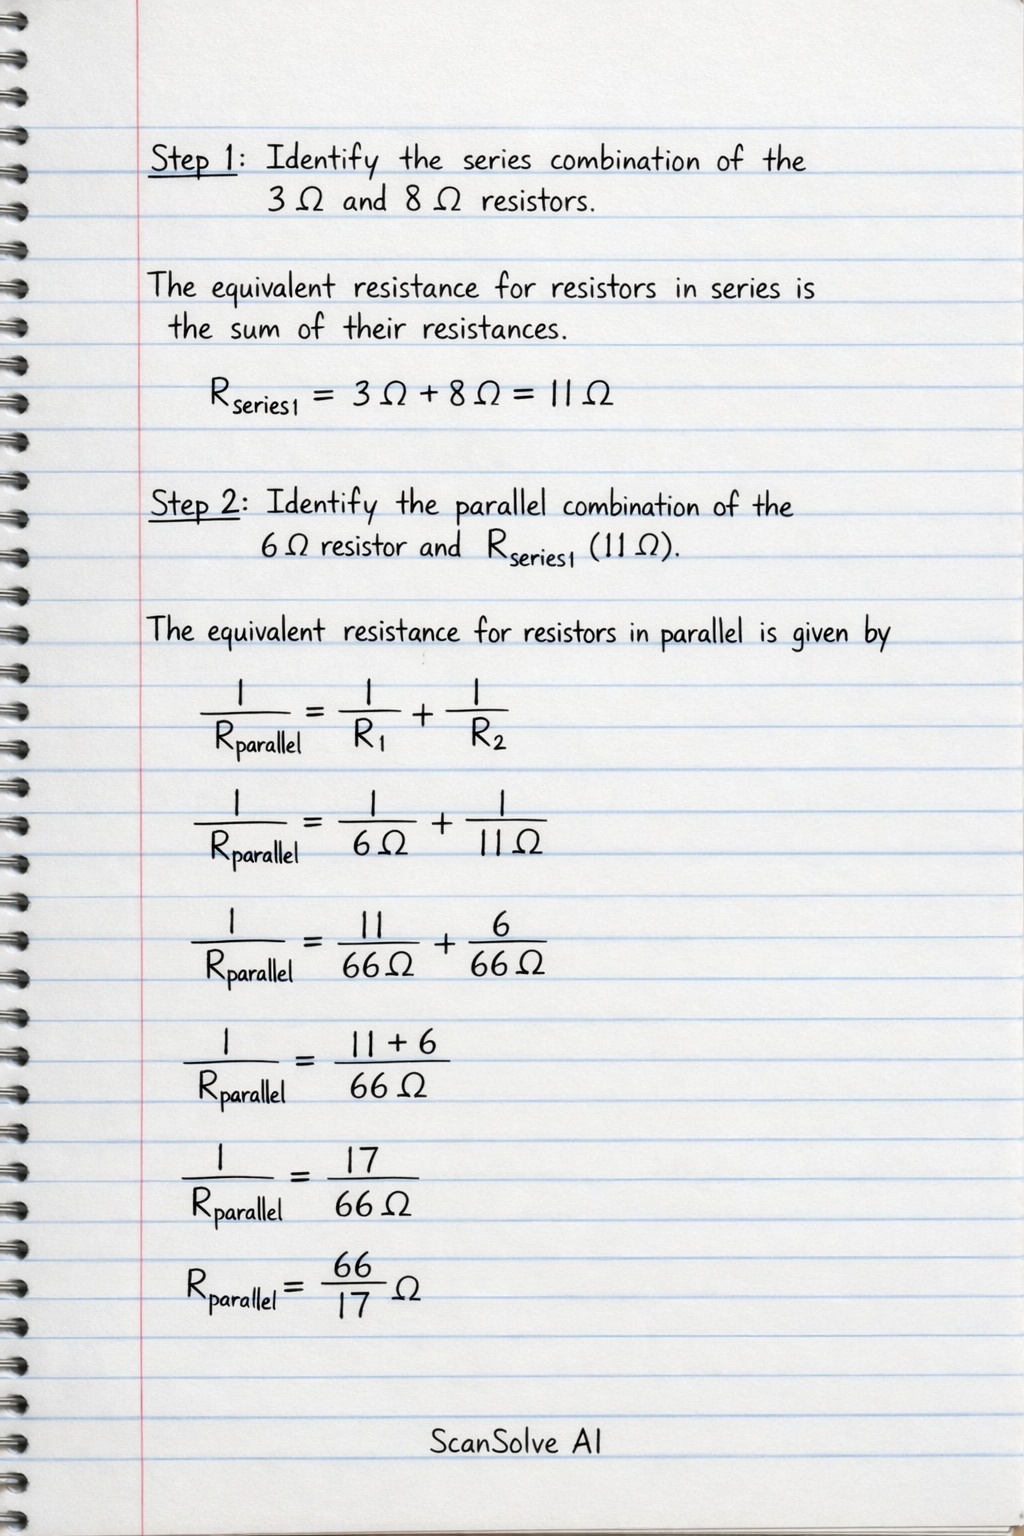 Step 1: Identify the series combination of the
3 Ω and 8 Ω resistors.
The equivalent resistance for resistors in series is
the sum of their resistances.
R_series1 = 3 Ω + 8 Ω = 11 Ω
Step 2: Identify the parallel combination of the
6 Ω resistor and R_series1 (11 Ω).
The equivalent resistance for resistors in parallel is given by
1/R_parallel = 1/R_1 + 1/R_2
1/R_parallel = 1/6 Ω + 1/11 Ω
1/R_parallel = 11/66 Ω + 6/66 Ω
1/R_parallel = 11 + 6/66 Ω
1/R_parallel = 17/66 Ω
R_parallel = 66/17 Ω
ScanSolve AI